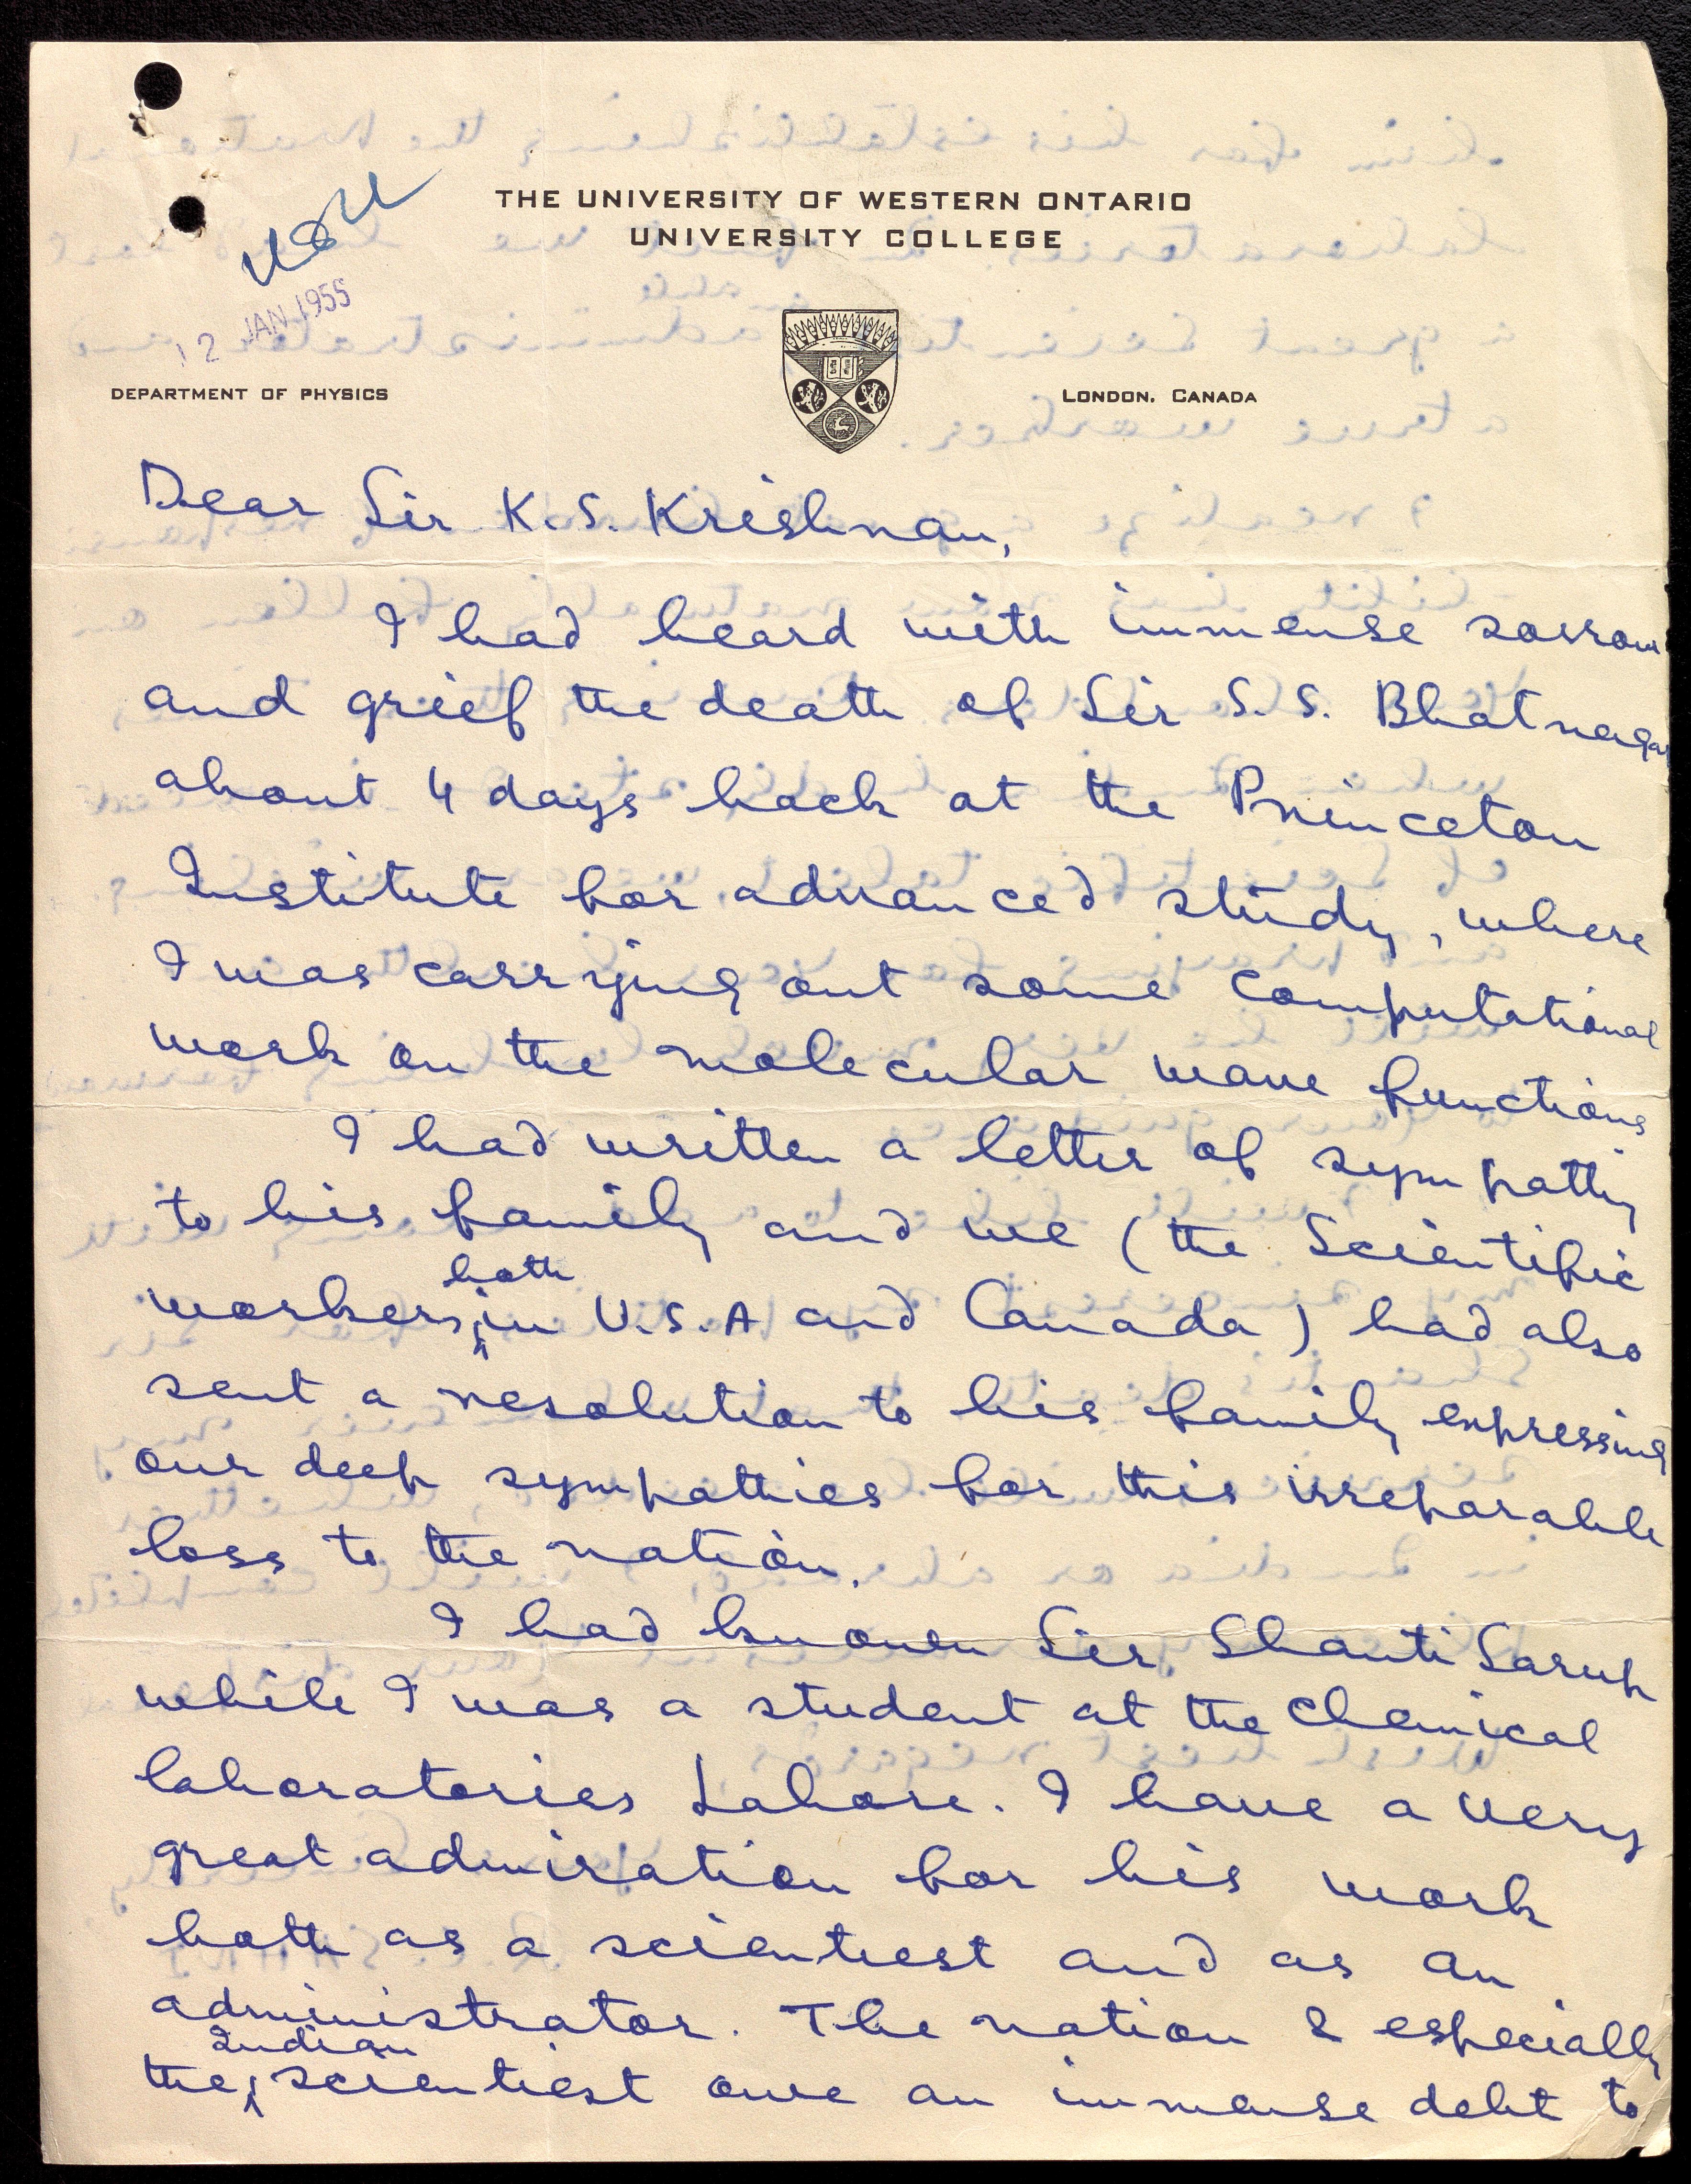 THE UNIVERSITY OF WESTERN ONTARIO
UNIVERSITY COLLEGE
12 JAN 1955
DEPARTMENT OF PHYSICS
LONDON, CANADA
Dear Sir K.S. Krishnan,
I had heard with immense sorrow
and grief the death of Sir S. S. Bhatnagar
about 4 days back at the Princeton
Institute for advanced study, where
I was carrying out some computational
work on the molecular wave functions
I had written a letter of sympathy
to his family and we (the Scientific
both
workers, in U.S.A and Canada) had also
sent a resolution to his family expressing
our deep sympathies for this irreparable
loss to the nation.
I had known Sir Shanti Sarup
while I was a student at the Chemical
laboratories Lahore. I have a very
great admiration for his work
both as a scientiest and as an
administrator. The nation & especially
Indian
the scientiest owe an immense debt to